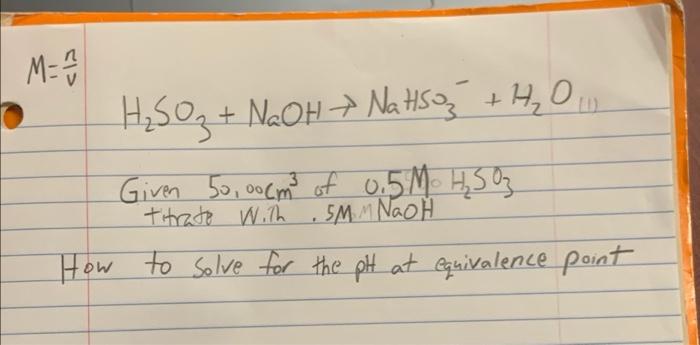 M = n/v
H₂SO₃ + NaOH → NaHSO₃⁻ + H₂O (l)
Given 50.00cm³ of 0.5M H₂SO₃
titrate With .5M NaOH
How to solve for the pH at equivalence point